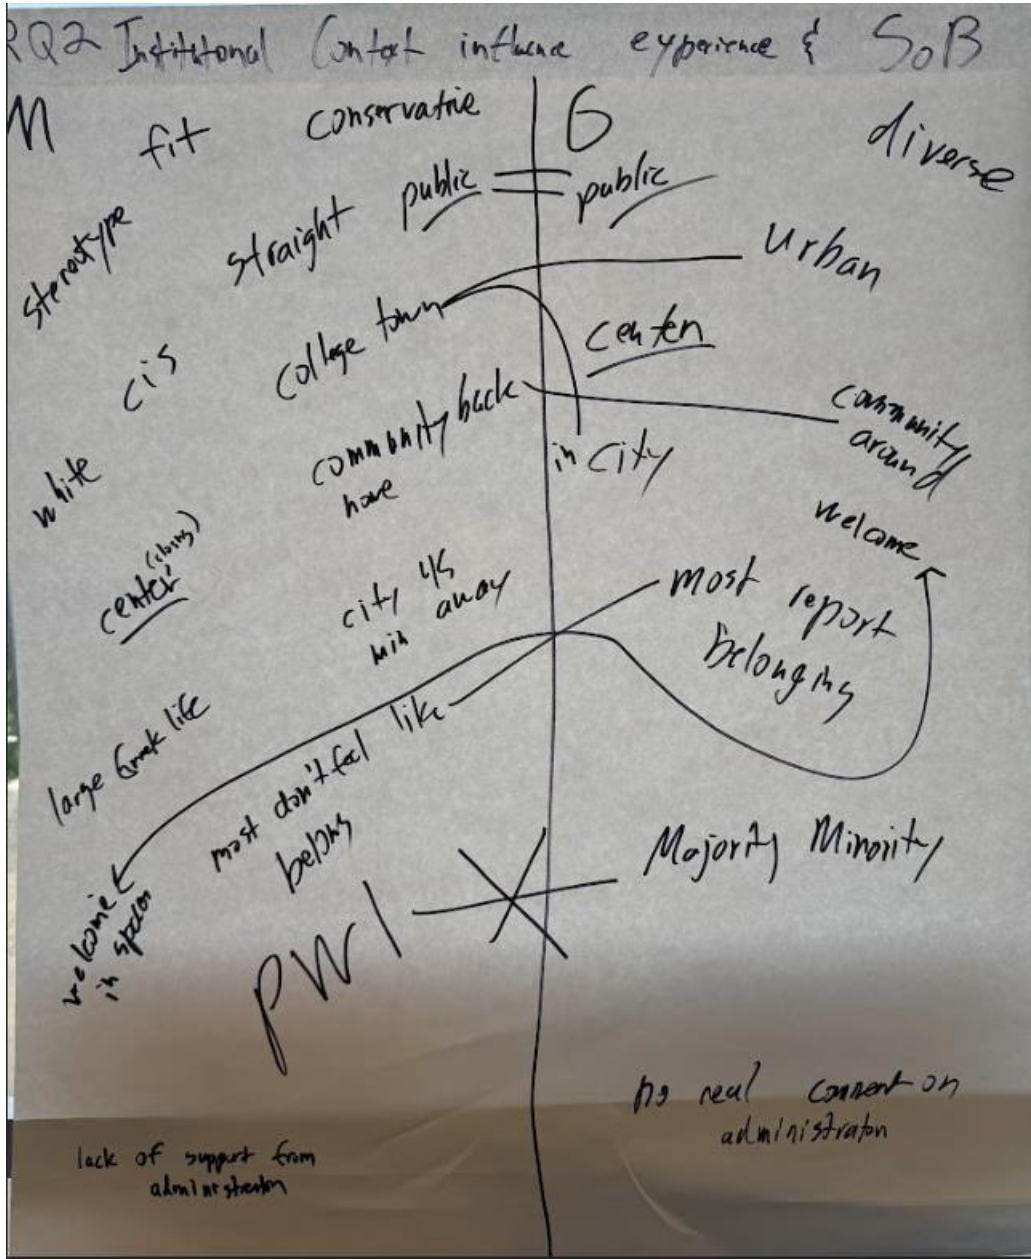 RQ2 Institutonal Context influence experience & SoB
M
fit
conservative
stereotype
straight
public
college town
cis
community back
home
white
center (closing)
city 45
min away
large Greek life
like
most don't feel
belong
welcome
in spaces
PWI
lack of support from
administration
G
diverse
public
urban
center
in city
community
around
welcome
most report
belonging
Majority Minority
no real comment on
administraton